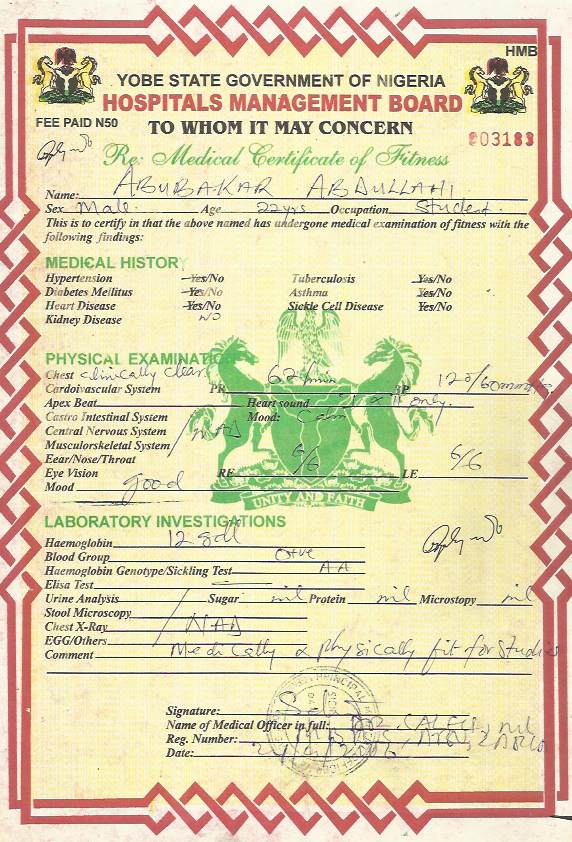 HMB
YOBE STATE GOVERNMENT OF NIGERIA
HOSPITALS MANAGEMENT BOARD
FEE PAID N50
TO WHOM IT MAY CONCERN
003183
Re: Medical Certificate of Fitness
Name: ABUBAKAR ABDULLAHI
Sex Male Age 22yrs Occupation Student
This is to certify in that the above named has undergone medical examination of fitness with the
following findings:
MEDICAL HISTORY
Hypertension Yes/No Tuberculosis Yes/No
Diabetes Mellitus Yes/No Asthma Yes/No
Heart Disease Yes/No Sickle Cell Disease Yes/No
Kidney Disease NO
PHYSICAL EXAMINATION
Chest clinically clear
Cardoivascular System PR 62/min BP 120/60mmHg
Apex Beat Heart sound I & II only.
Castro Intestinal System Mood: Calm
Central Nervous System NAD
Musculorskeletal System
Eear/Nose/Throat
Eye Vision RE 6/6 LE 6/6
Mood good
UNITY AND FAITH
LABORATORY INVESTIGATIONS
Haemoglobin 12g/dl
Blood Group O+ve
Haemoglobin Genotype/Sickling Test AA
Elisa Test
Urine Analysis Sugar nil Protein nil Microstopy nil
Stool Microscopy
Chest X-Ray NAD
EGG/Others
Comment Medically & physically fit for studies
Signature:
Name of Medical Officer in full: DR. SALEH
Reg. Number:
Date:
PRINCIPAL